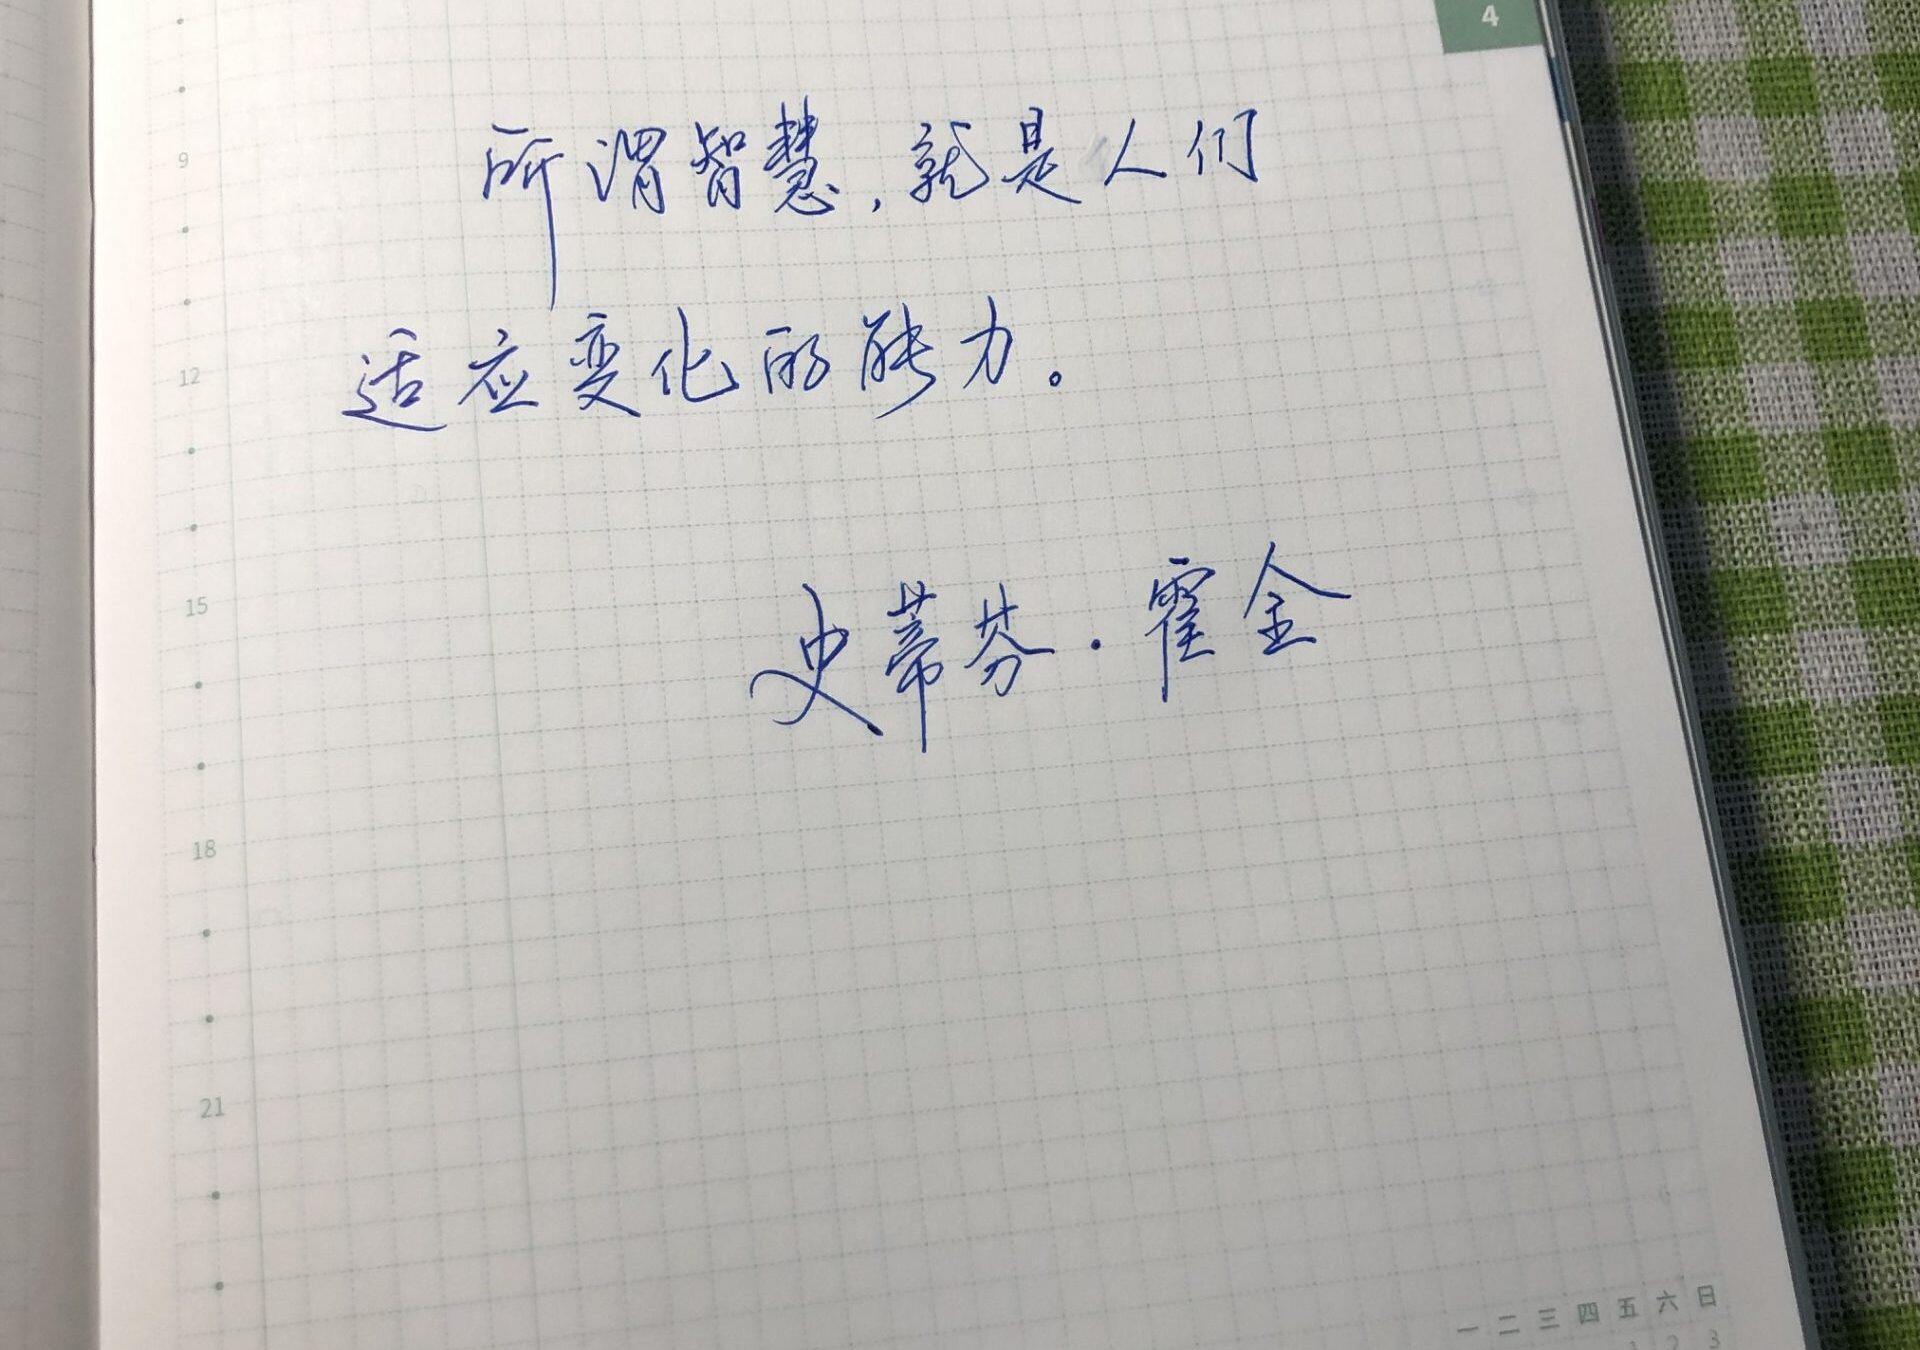 4
9
所谓智慧，就是人们
12
适应变化的能力。
15
史蒂芬·霍金
18
21
一 二 三 四 五 六 日
1 2 3